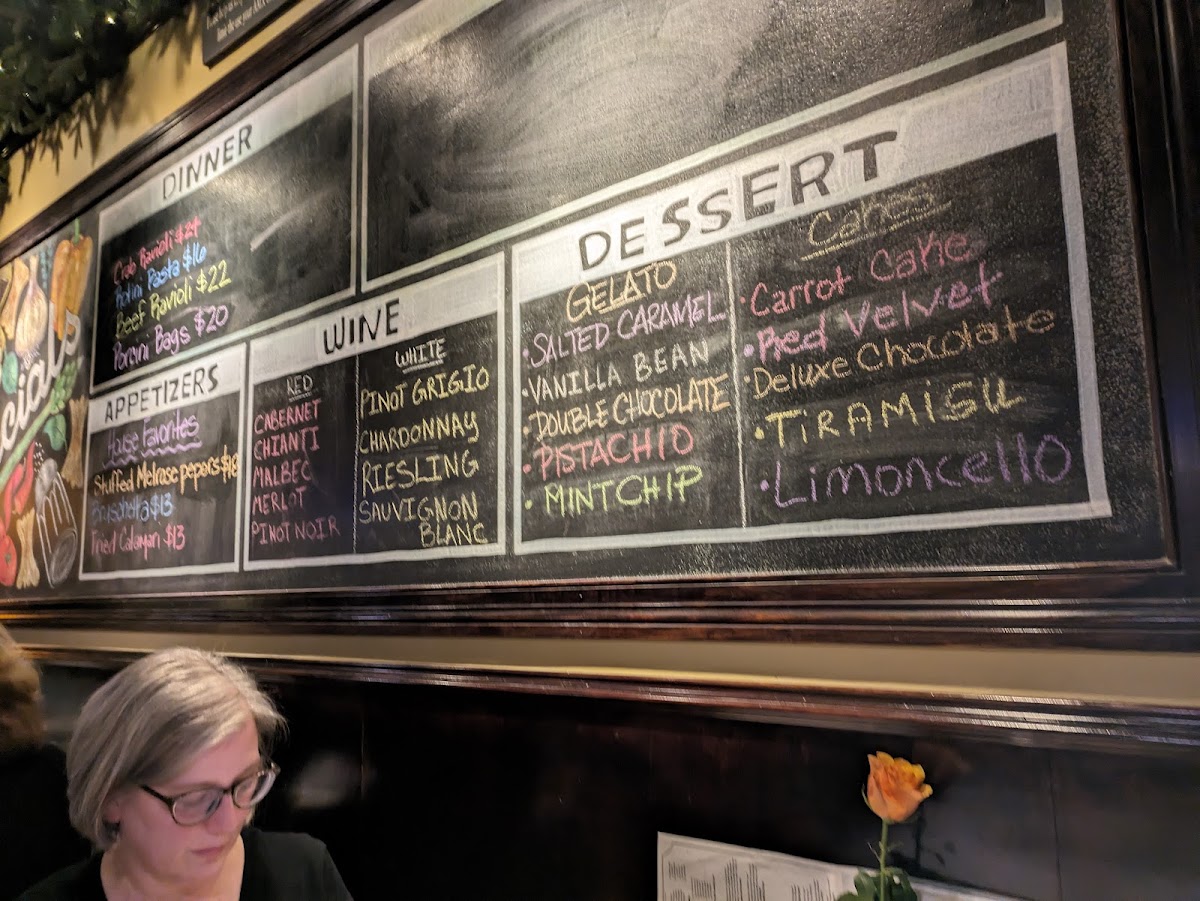 DINNER
Crab Ravioli $24
Rotini Pasta $16
Beef Ravioli $22
Porcini Bags $20
cials
APPETIZERS
House Favorites
Stuffed Melrose pepers
Bruschetta $13
Fried Calamari $13
WINE
RED
CABERNET
CHIANTI
MALBEC
MERLOT
PINOT NOIR
WHITE
PINOT GRIGIO
CHARDONNAY
RIESLING
SAUVIGNON
BLANC
DESSERT
GELATO
• SALTED CARAMEL
• VANILLA BEAN
• DOUBLE CHOCOLATE
• PISTACHIO
• MINT CHIP
Cakes
• Carrot Cake
• Red Velvet
• Deluxe Chocolate
• TIRAMISU
• Limoncello